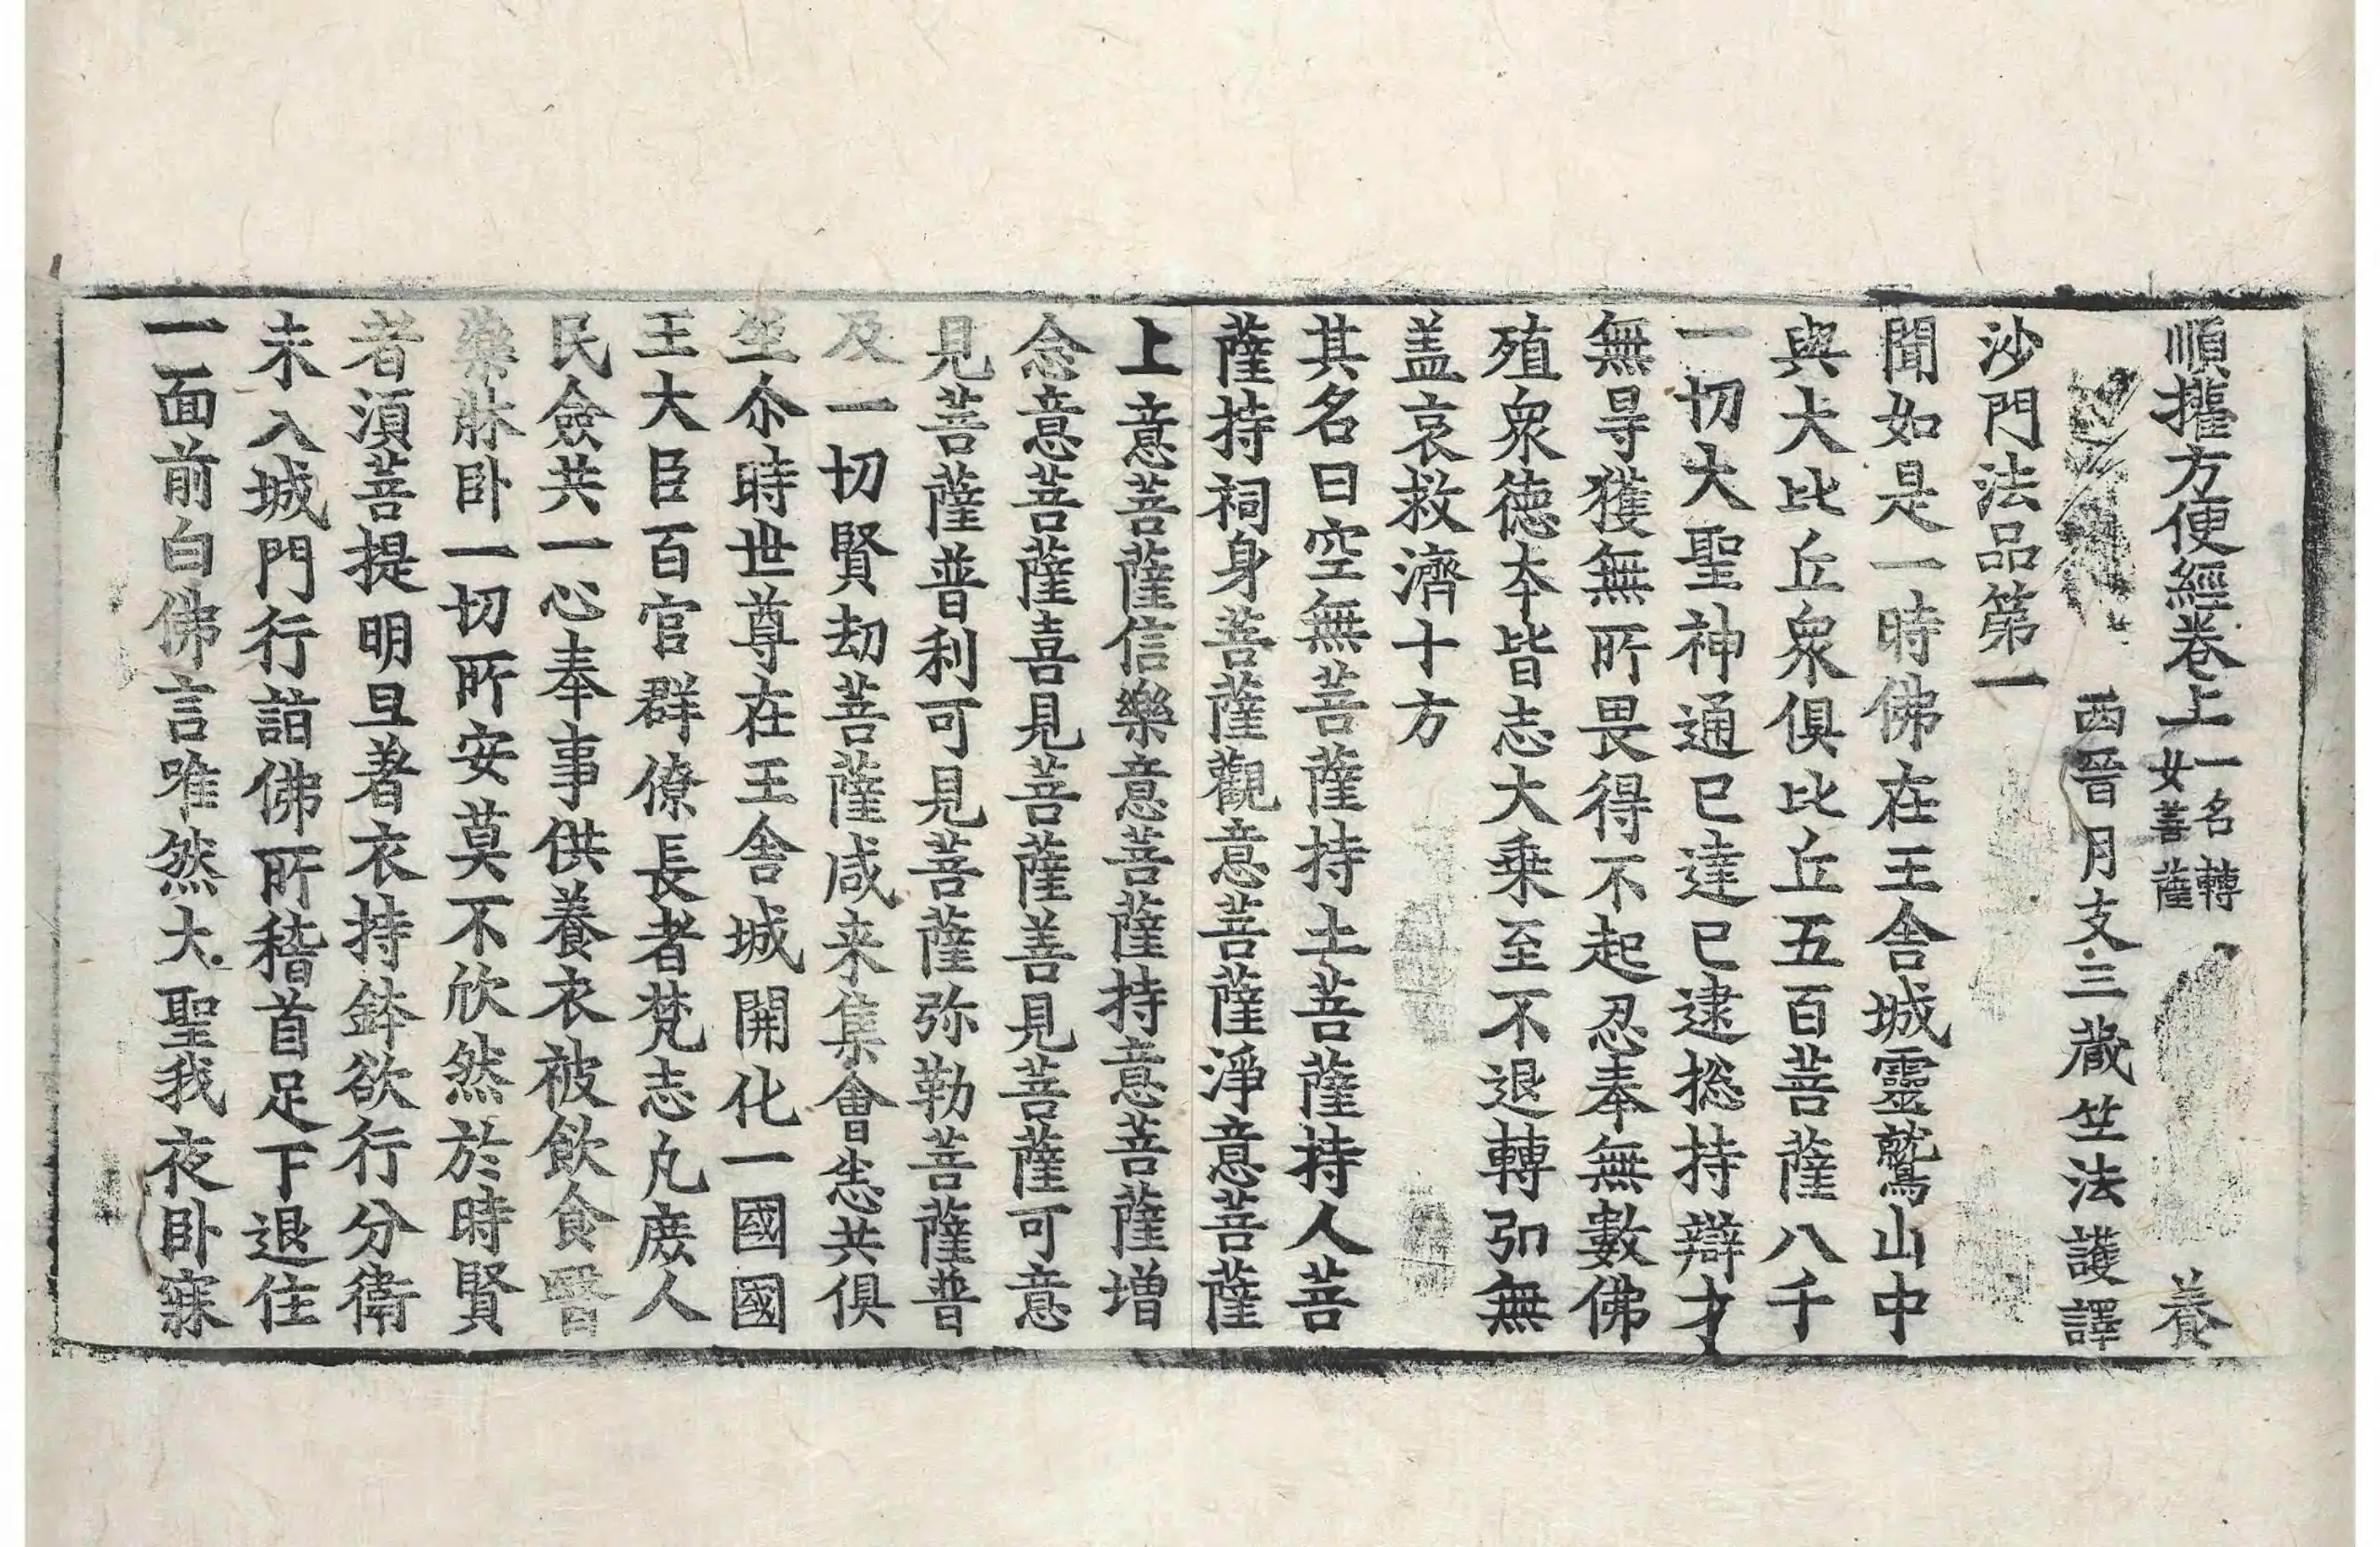 順權方便經卷上 一名轉女菩薩 養
西晉月支三藏竺法護譯
沙門法品第一
聞如是一時佛在王舍城靈鷲山中
與大比丘衆俱比丘五百菩薩八千
一切大聖神通已達已逮捴持辯才
無㝵獲無所畏得不起忍奉無數佛
殖衆德夲皆志大乗至不退轉弘無
盖哀救濟十方
其名曰空無菩薩持土菩薩持人菩
薩持祠身菩薩觀意菩薩淨意菩薩
上意菩薩信樂意菩薩持意菩薩增
念意菩薩喜見菩薩善見菩薩可意
見菩薩普利可見菩薩弥勒菩薩普
及一切賢劫菩薩咸来集會㤙共俱
坐尒時世尊在王舍城開化一國國
王大臣百官群僚長者梵志凡庻人
民僉共一心奉事供養衣被飲食醫
藥牀卧一切所安莫不欣然於時賢
者湏菩提明旦著衣持鉢欲行分衛
未入城門行詣佛所稽首足下退住
一面前白佛言唯然大聖我夜卧寐